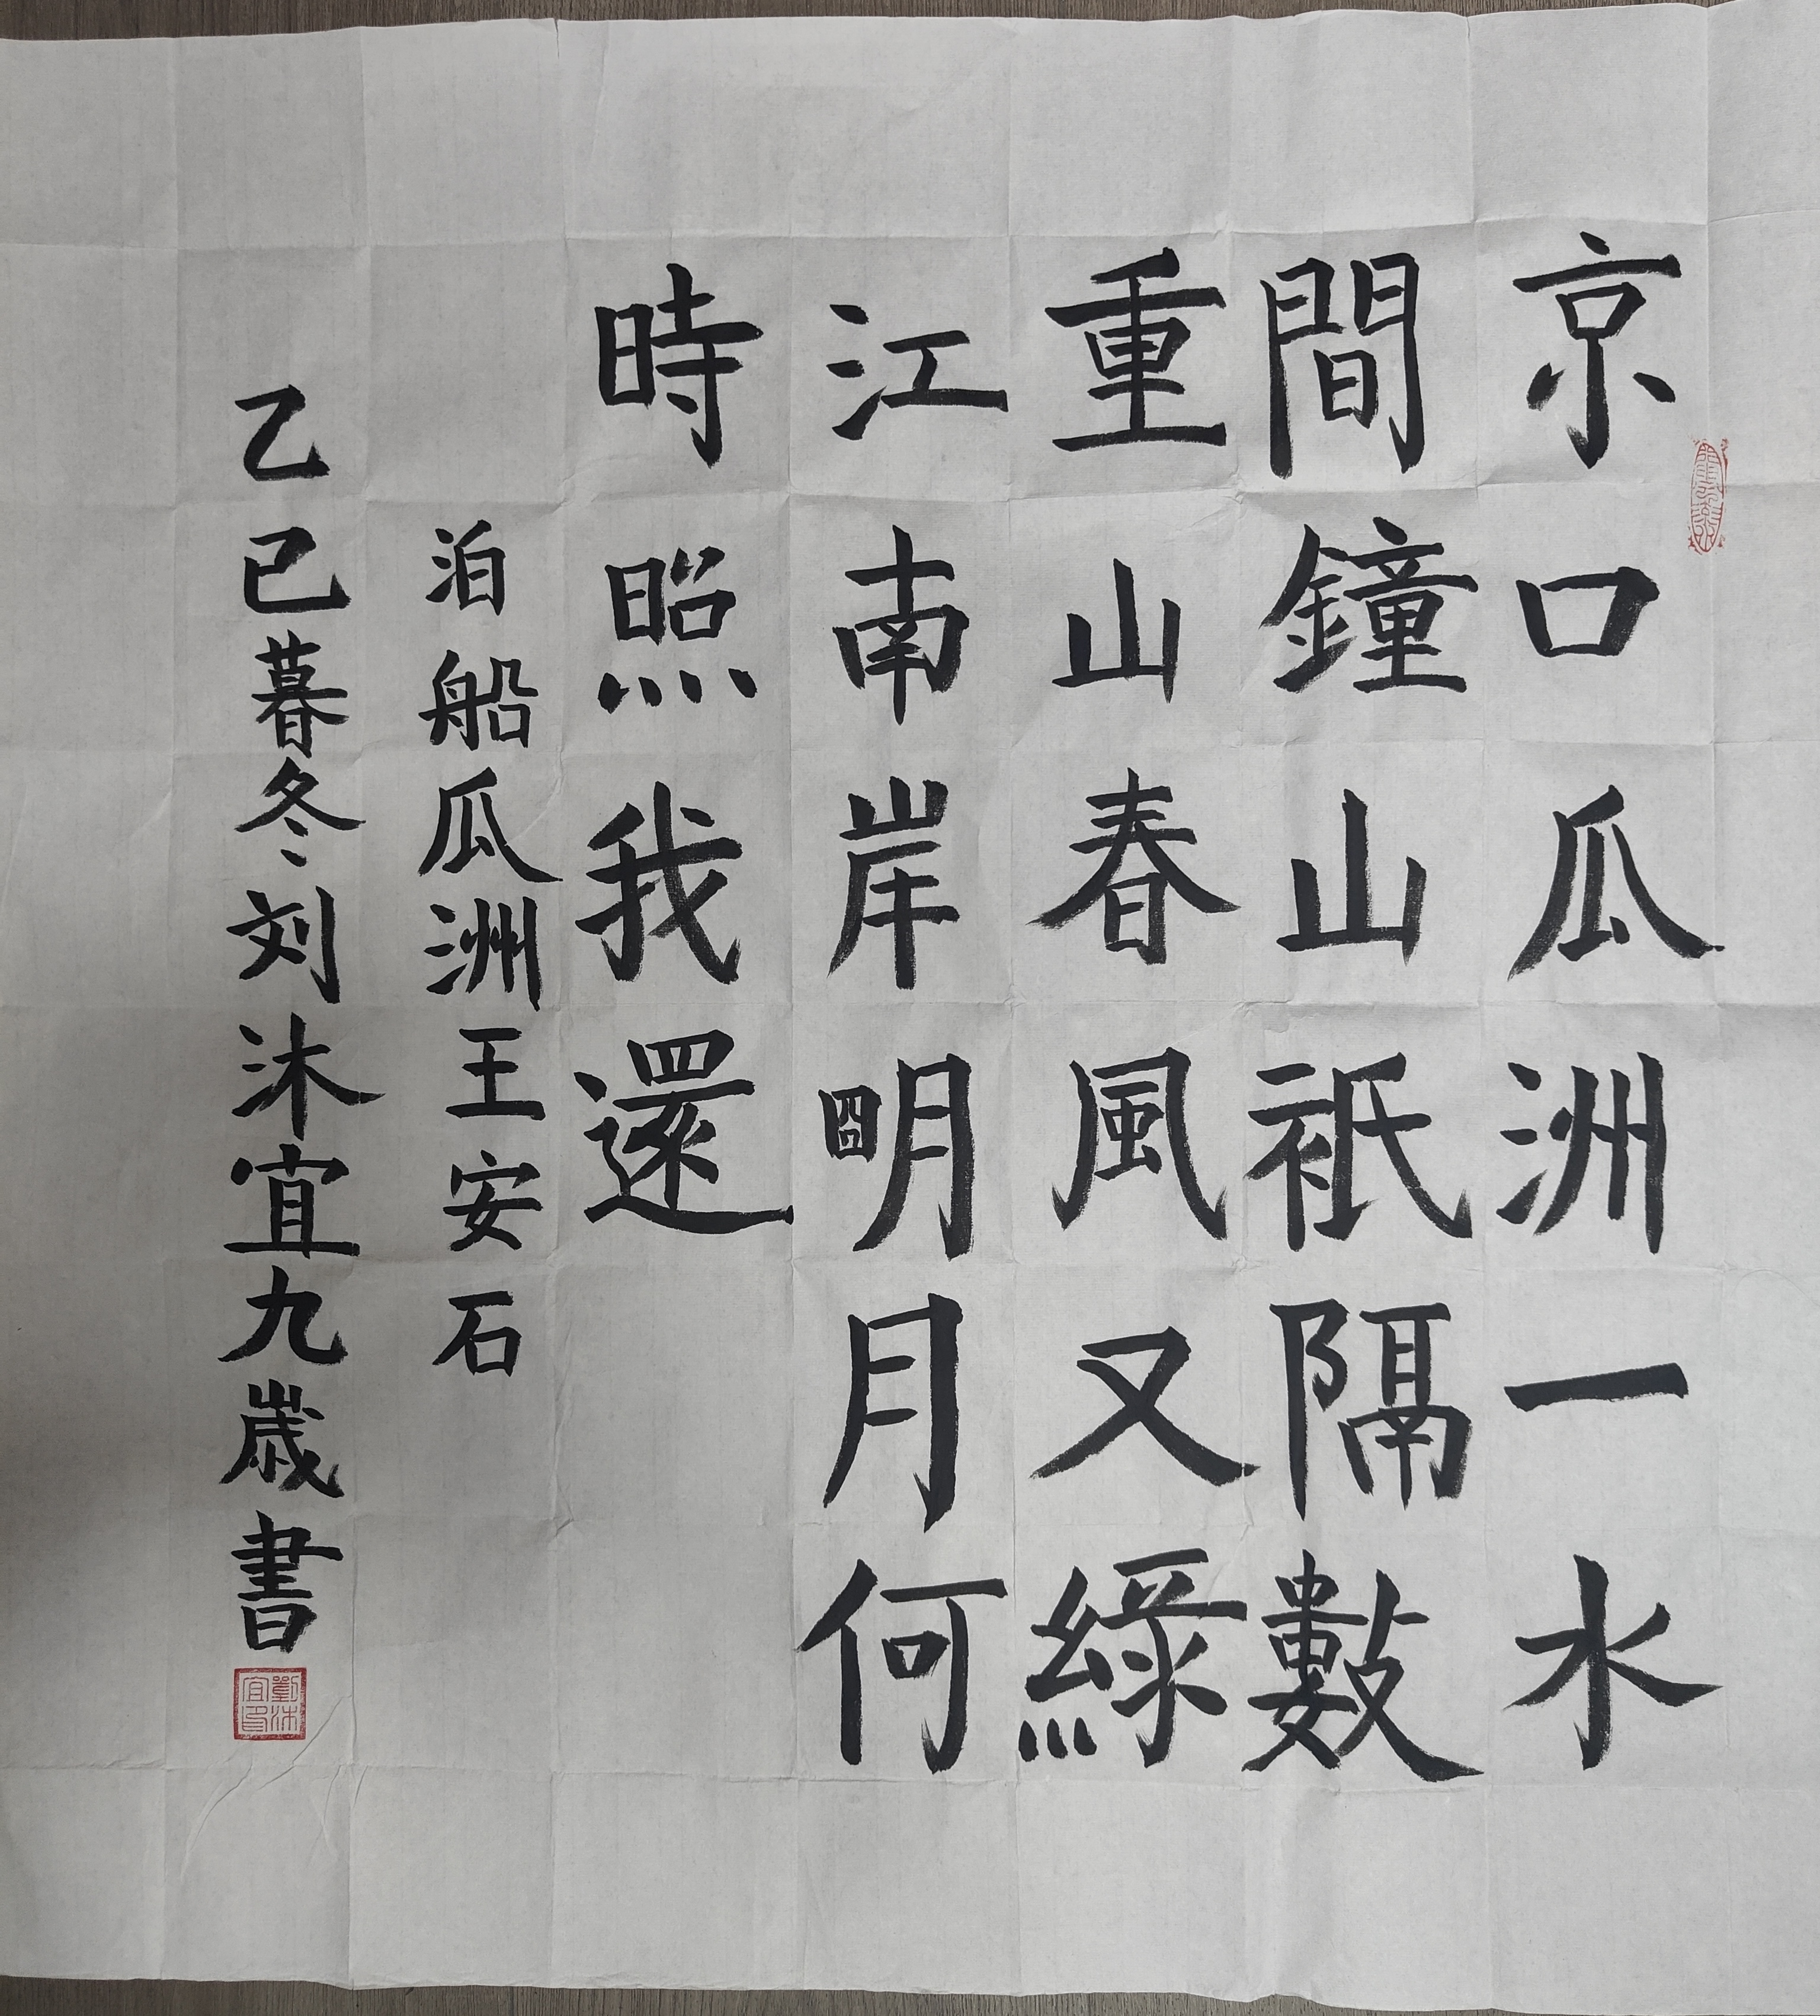 京口瓜洲一水
間鐘山衹隔數
重山春風又綠
江南岸明月何
時照我還
泊船瓜洲王安石
乙巳暮冬刘沐宜九歲書
劉沐宜印